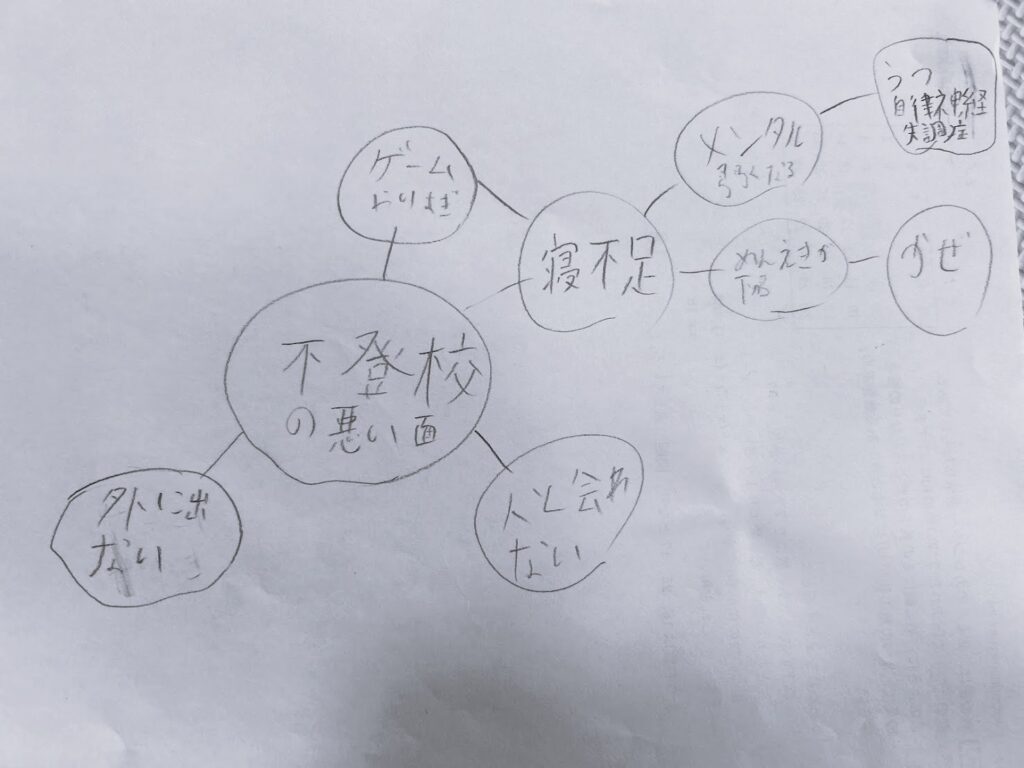 うつ
自律神経
失調症
メンタル
弱くなる
ゲーム
やりすぎ
寝不足
めんえきが
下がる
かぜ
不登校
の悪い面
外に出
ない
人と会わ
ない